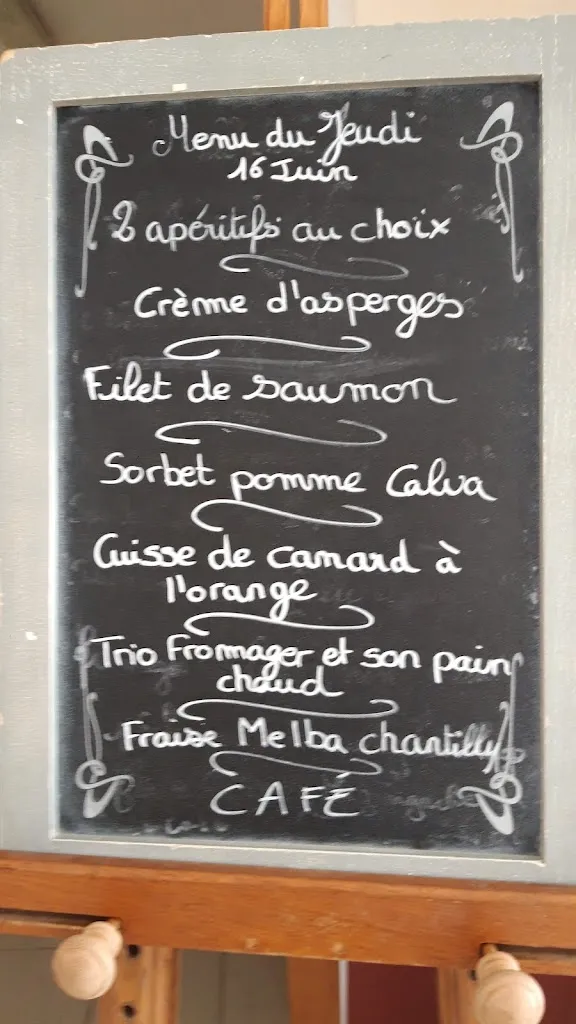 Menu du Jeudi
16 Juin
2 apéritifs au choix
Crème d'asperges
Filet de saumon
Sorbet pomme Calva
Cuisse de canard à
l'orange
Trio Fromager et son pain
chaud
Fraise Melba chantilly
CAFÉ